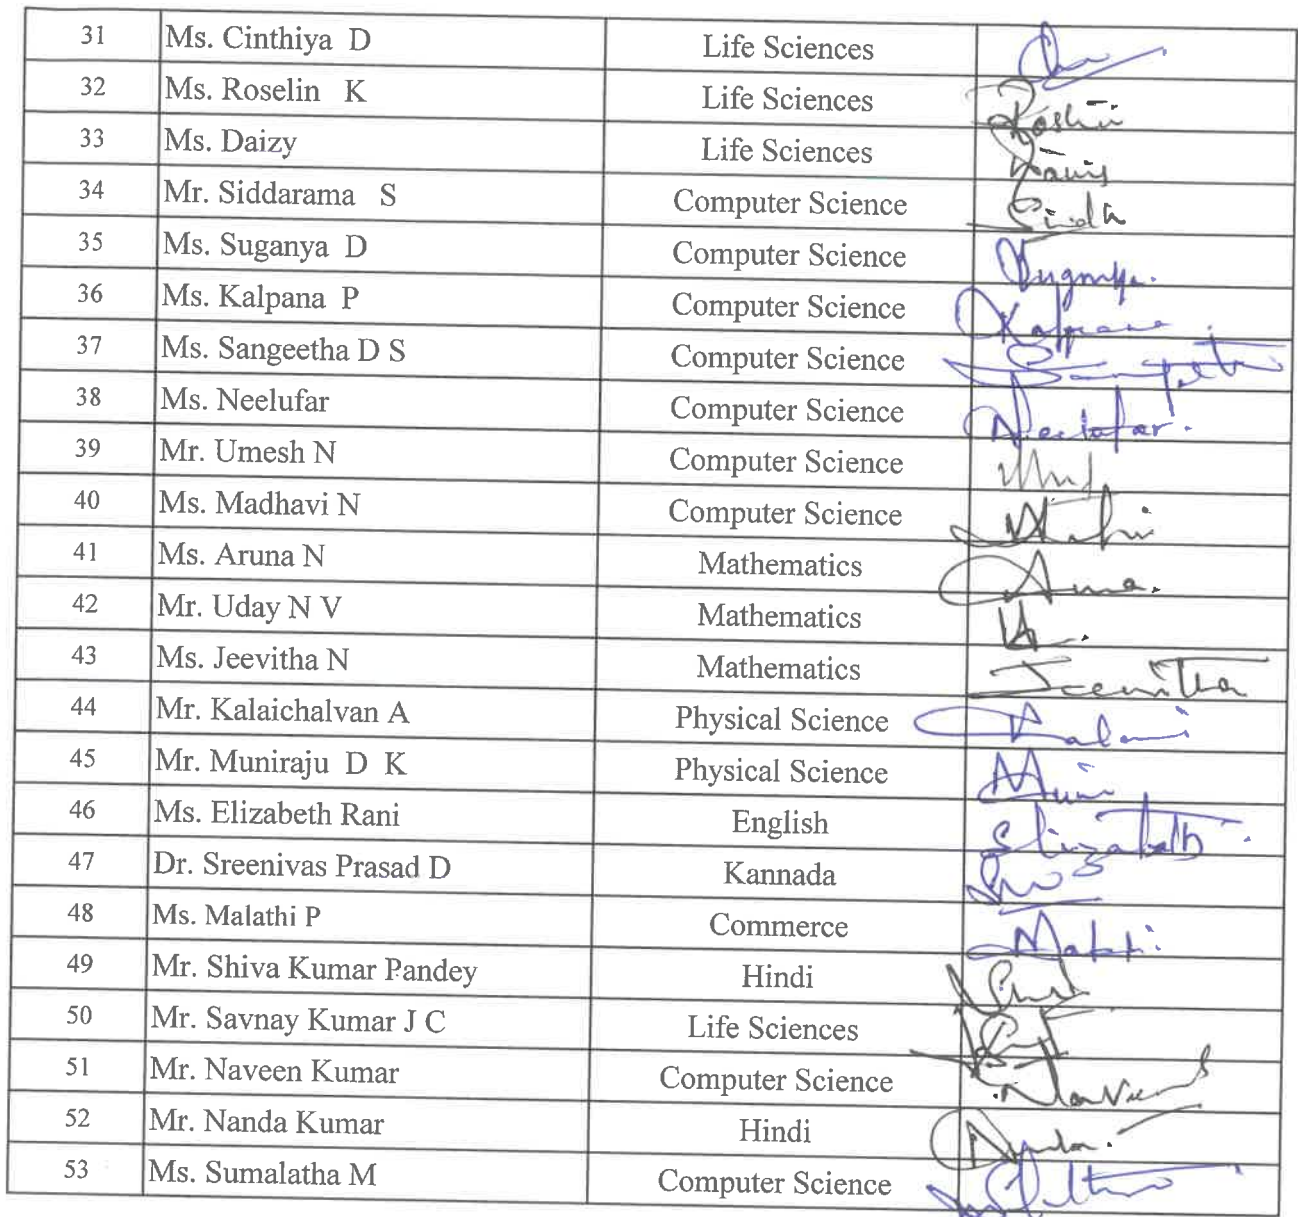 31 Ms. Cinthiya D Life Sciences
32 Ms. Roselin K Life Sciences
33 Ms. Daizy Life Sciences
34 Mr. Siddarama S Computer Science Sidda
35 Ms. Suganya D Computer Science Suganya.
36 Ms. Kalpana P Computer Science Kalpana.
37 Ms. Sangeetha D S Computer Science
38 Ms. Neelufar Computer Science Neelofar.
39 Mr. Umesh N Computer Science
40 Ms. Madhavi N Computer Science
41 Ms. Aruna N Mathematics Aruna.
42 Mr. Uday N V Mathematics
43 Ms. Jeevitha N Mathematics Jeevitha
44 Mr. Kalaichalvan A Physical Science
45 Mr. Muniraju D K Physical Science Muni
46 Ms. Elizabeth Rani English Elizabeth.
47 Dr. Sreenivas Prasad D Kannada
48 Ms. Malathi P Commerce
49 Mr. Shiva Kumar Pandey Hindi
50 Mr. Savnay Kumar J C Life Sciences
51 Mr. Naveen Kumar Computer Science
52 Mr. Nanda Kumar Hindi Nanda.
53 Ms. Sumalatha M Computer Science